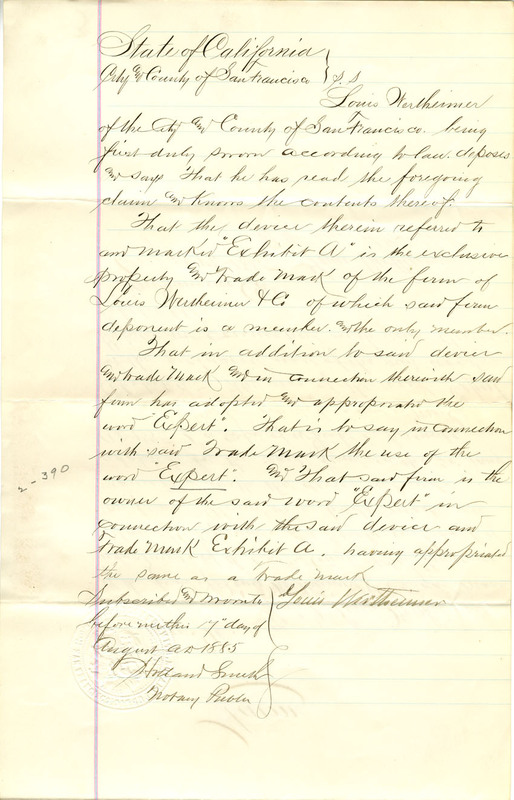 State of California
City and County of San Francisco } S.S
Louis Wertheimer
of the City and County of San Francisco. being
first duly sworn according to law. deposes
and says That he has read the foregoing
claim and Knows the contents thereof.
That the device therein referred to
and marked "Exhibit A" is the exclusive
property and Trade Mark of the firm of
Louis Wertheimer & Co of which said firm
deponent is a member. and the only member.
That in addition to said device
and trade Mark and in connection therewith said
firm has adopted and appropriated the
word "Expert". That is to say in connection
with said Trade Mark the use of the
word "Expert". and That said firm is the
owner of the said word "Expert" in
connection with the said device and
Trade Mark Exhibit A. having appropriated
the same as a Trade mark
Subscribed and sworn to } Louis Wertheimer
before me this 7" day of
August A.D 1885
Holland Smith
Notary Public
2-390